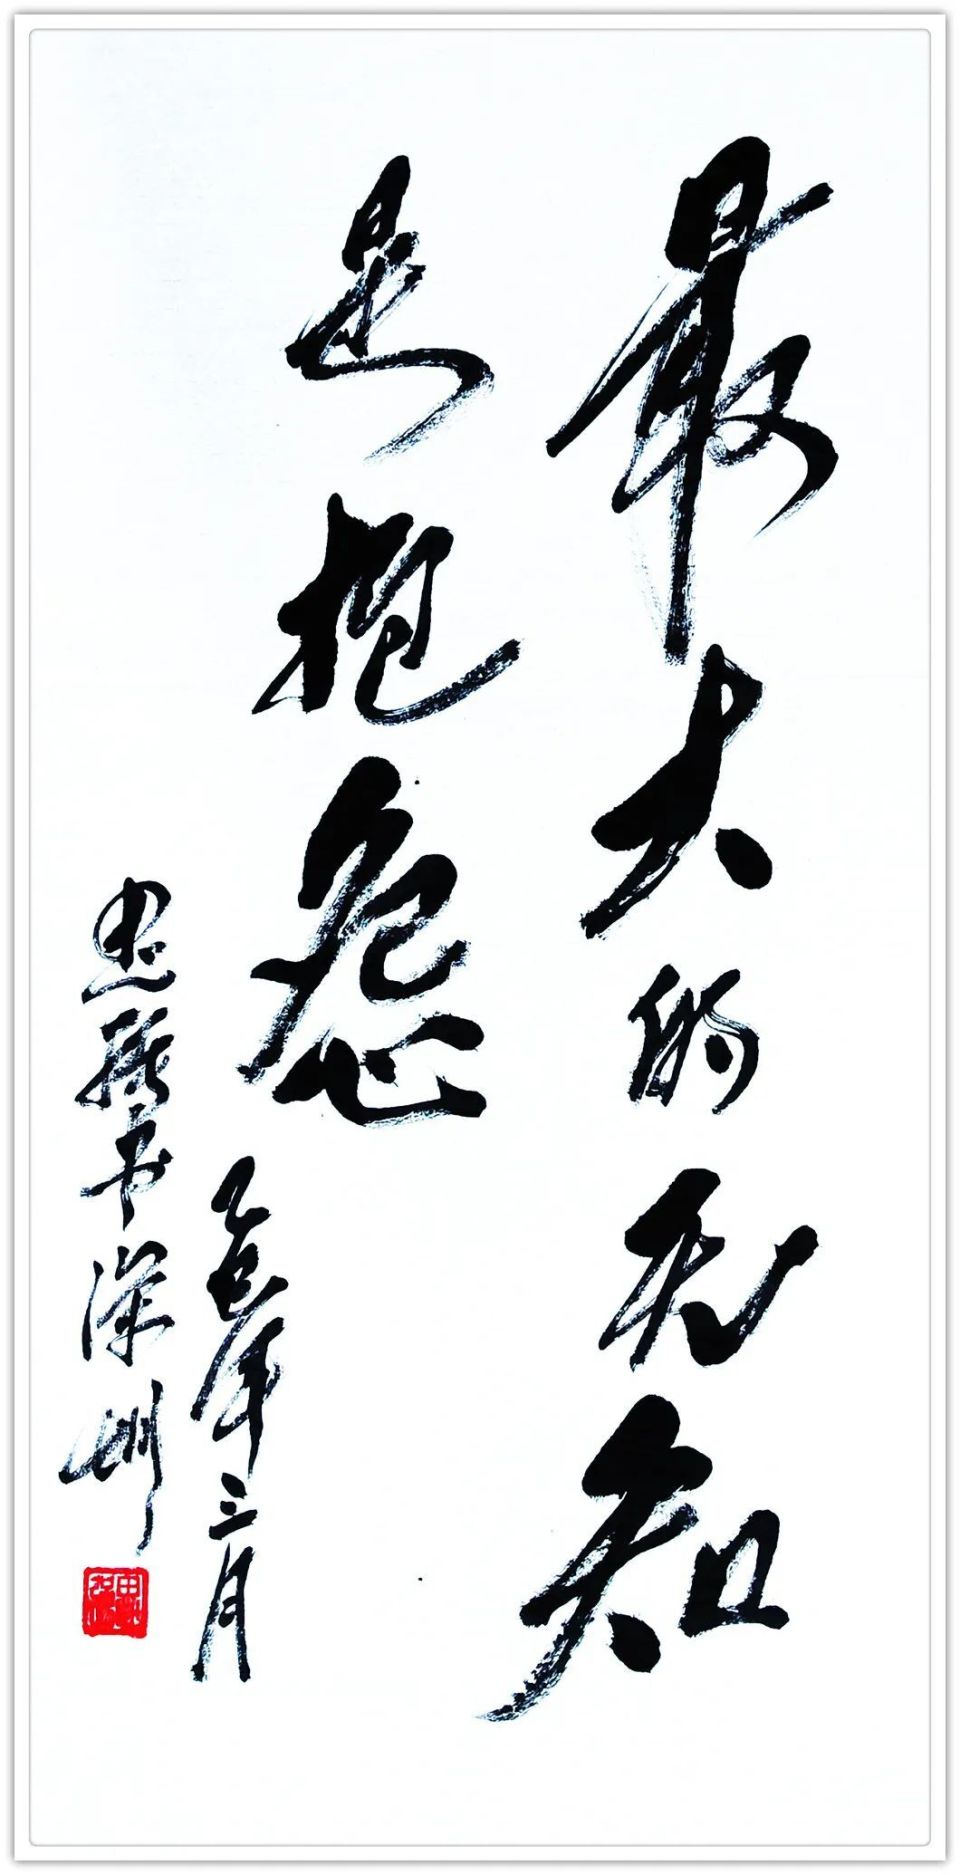 最大的无知
是抱怨
乙巳年三月
书深圳